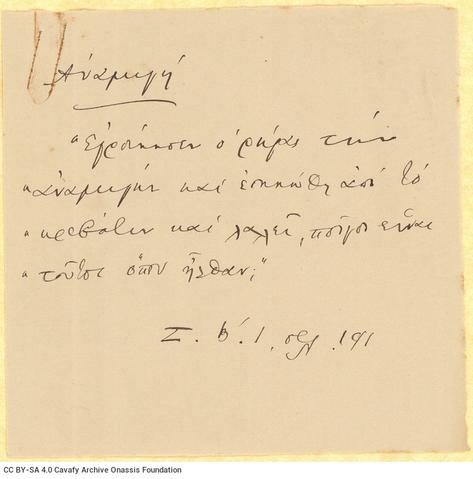 Ἀναμιγή
"Ἐγροίκησεν ὁ ρήγας τὴν
"ἀναμιγὴν καὶ ἐσηκώθη ἀπὸ τὸ
"κρεβάτιν καὶ λαλεῖ, ποῖοι εἶναι
"τοῦτοι ὅπου ἦλθαν;"
Σ. Β'. 1, σελ. 191
CC BY-SA 4.0 Cavafy Archive Onassis Foundation